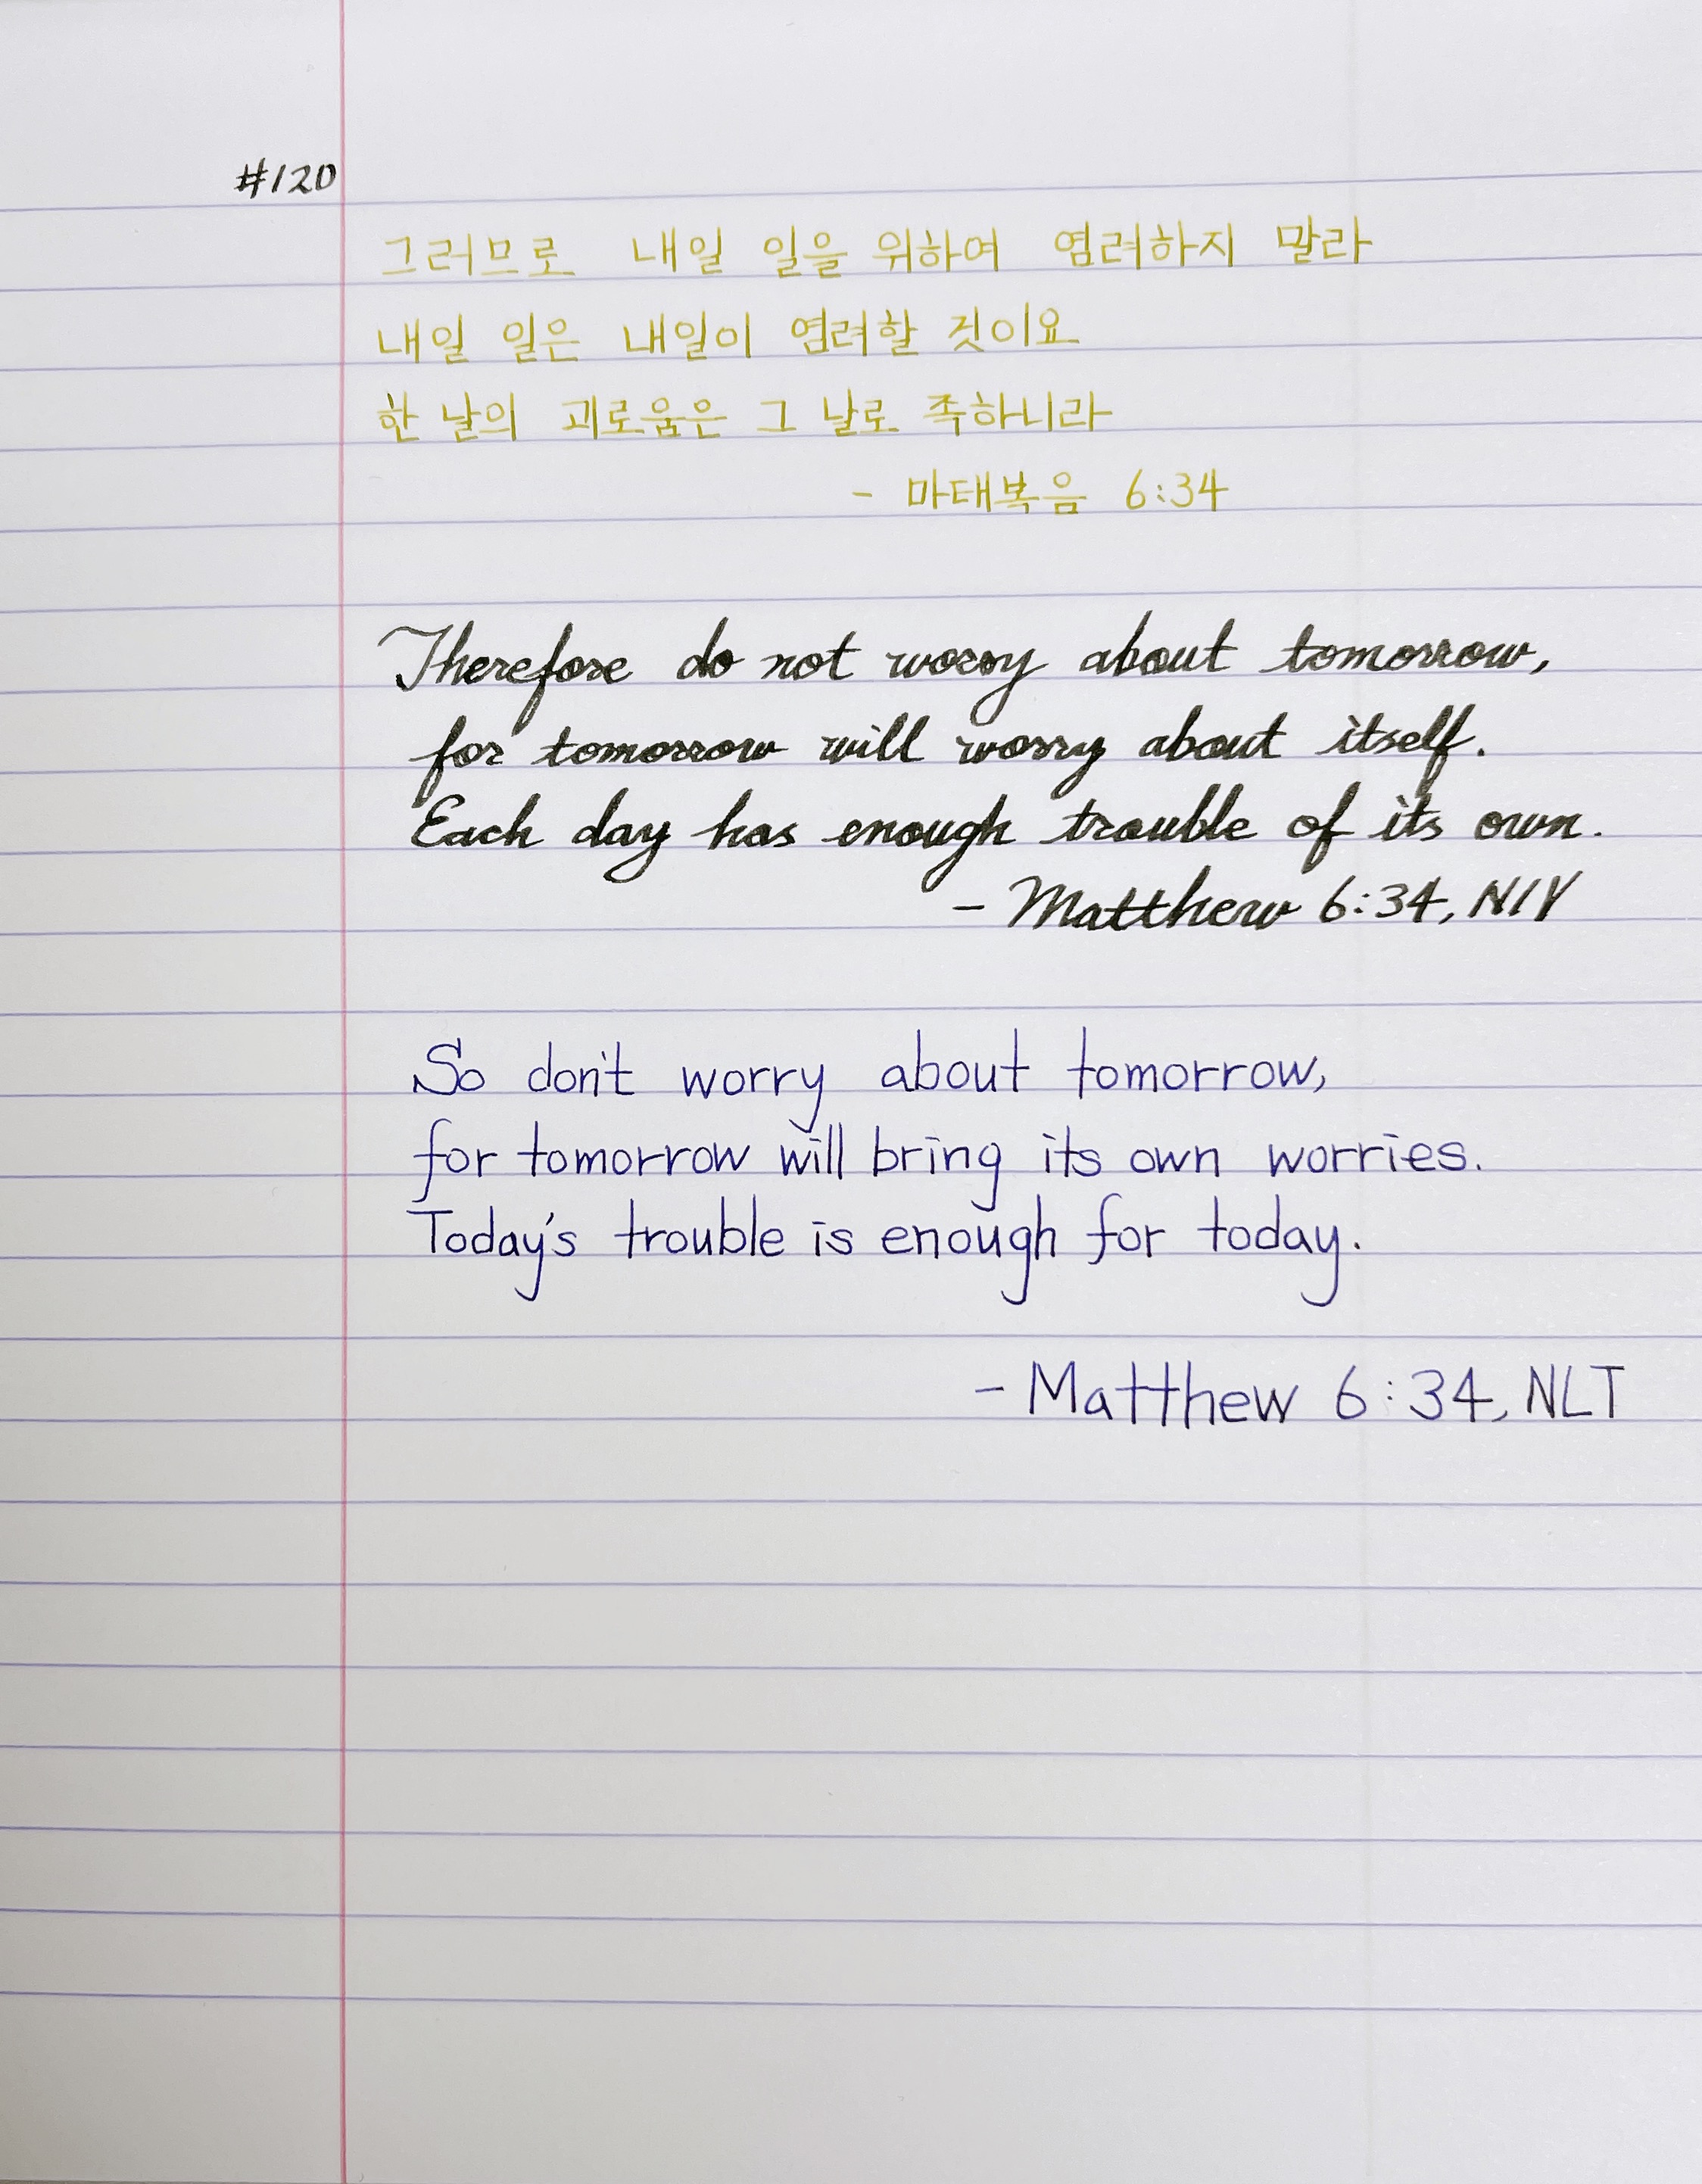 #120
그러므로 내일 일을 위하여 염려하지 말라
내일 일은 내일이 염려할 것이요
한 날의 괴로움은 그 날로 족하니라
- 마태복음 6:34
Therefore do not worry about tomorrow,
for tomorrow will worry about itself.
Each day has enough trouble of its own.
- Matthew 6:34, NIV
So don't worry about tomorrow,
for tomorrow will bring its own worries.
Today's trouble is enough for today.
- Matthew 6:34, NLT